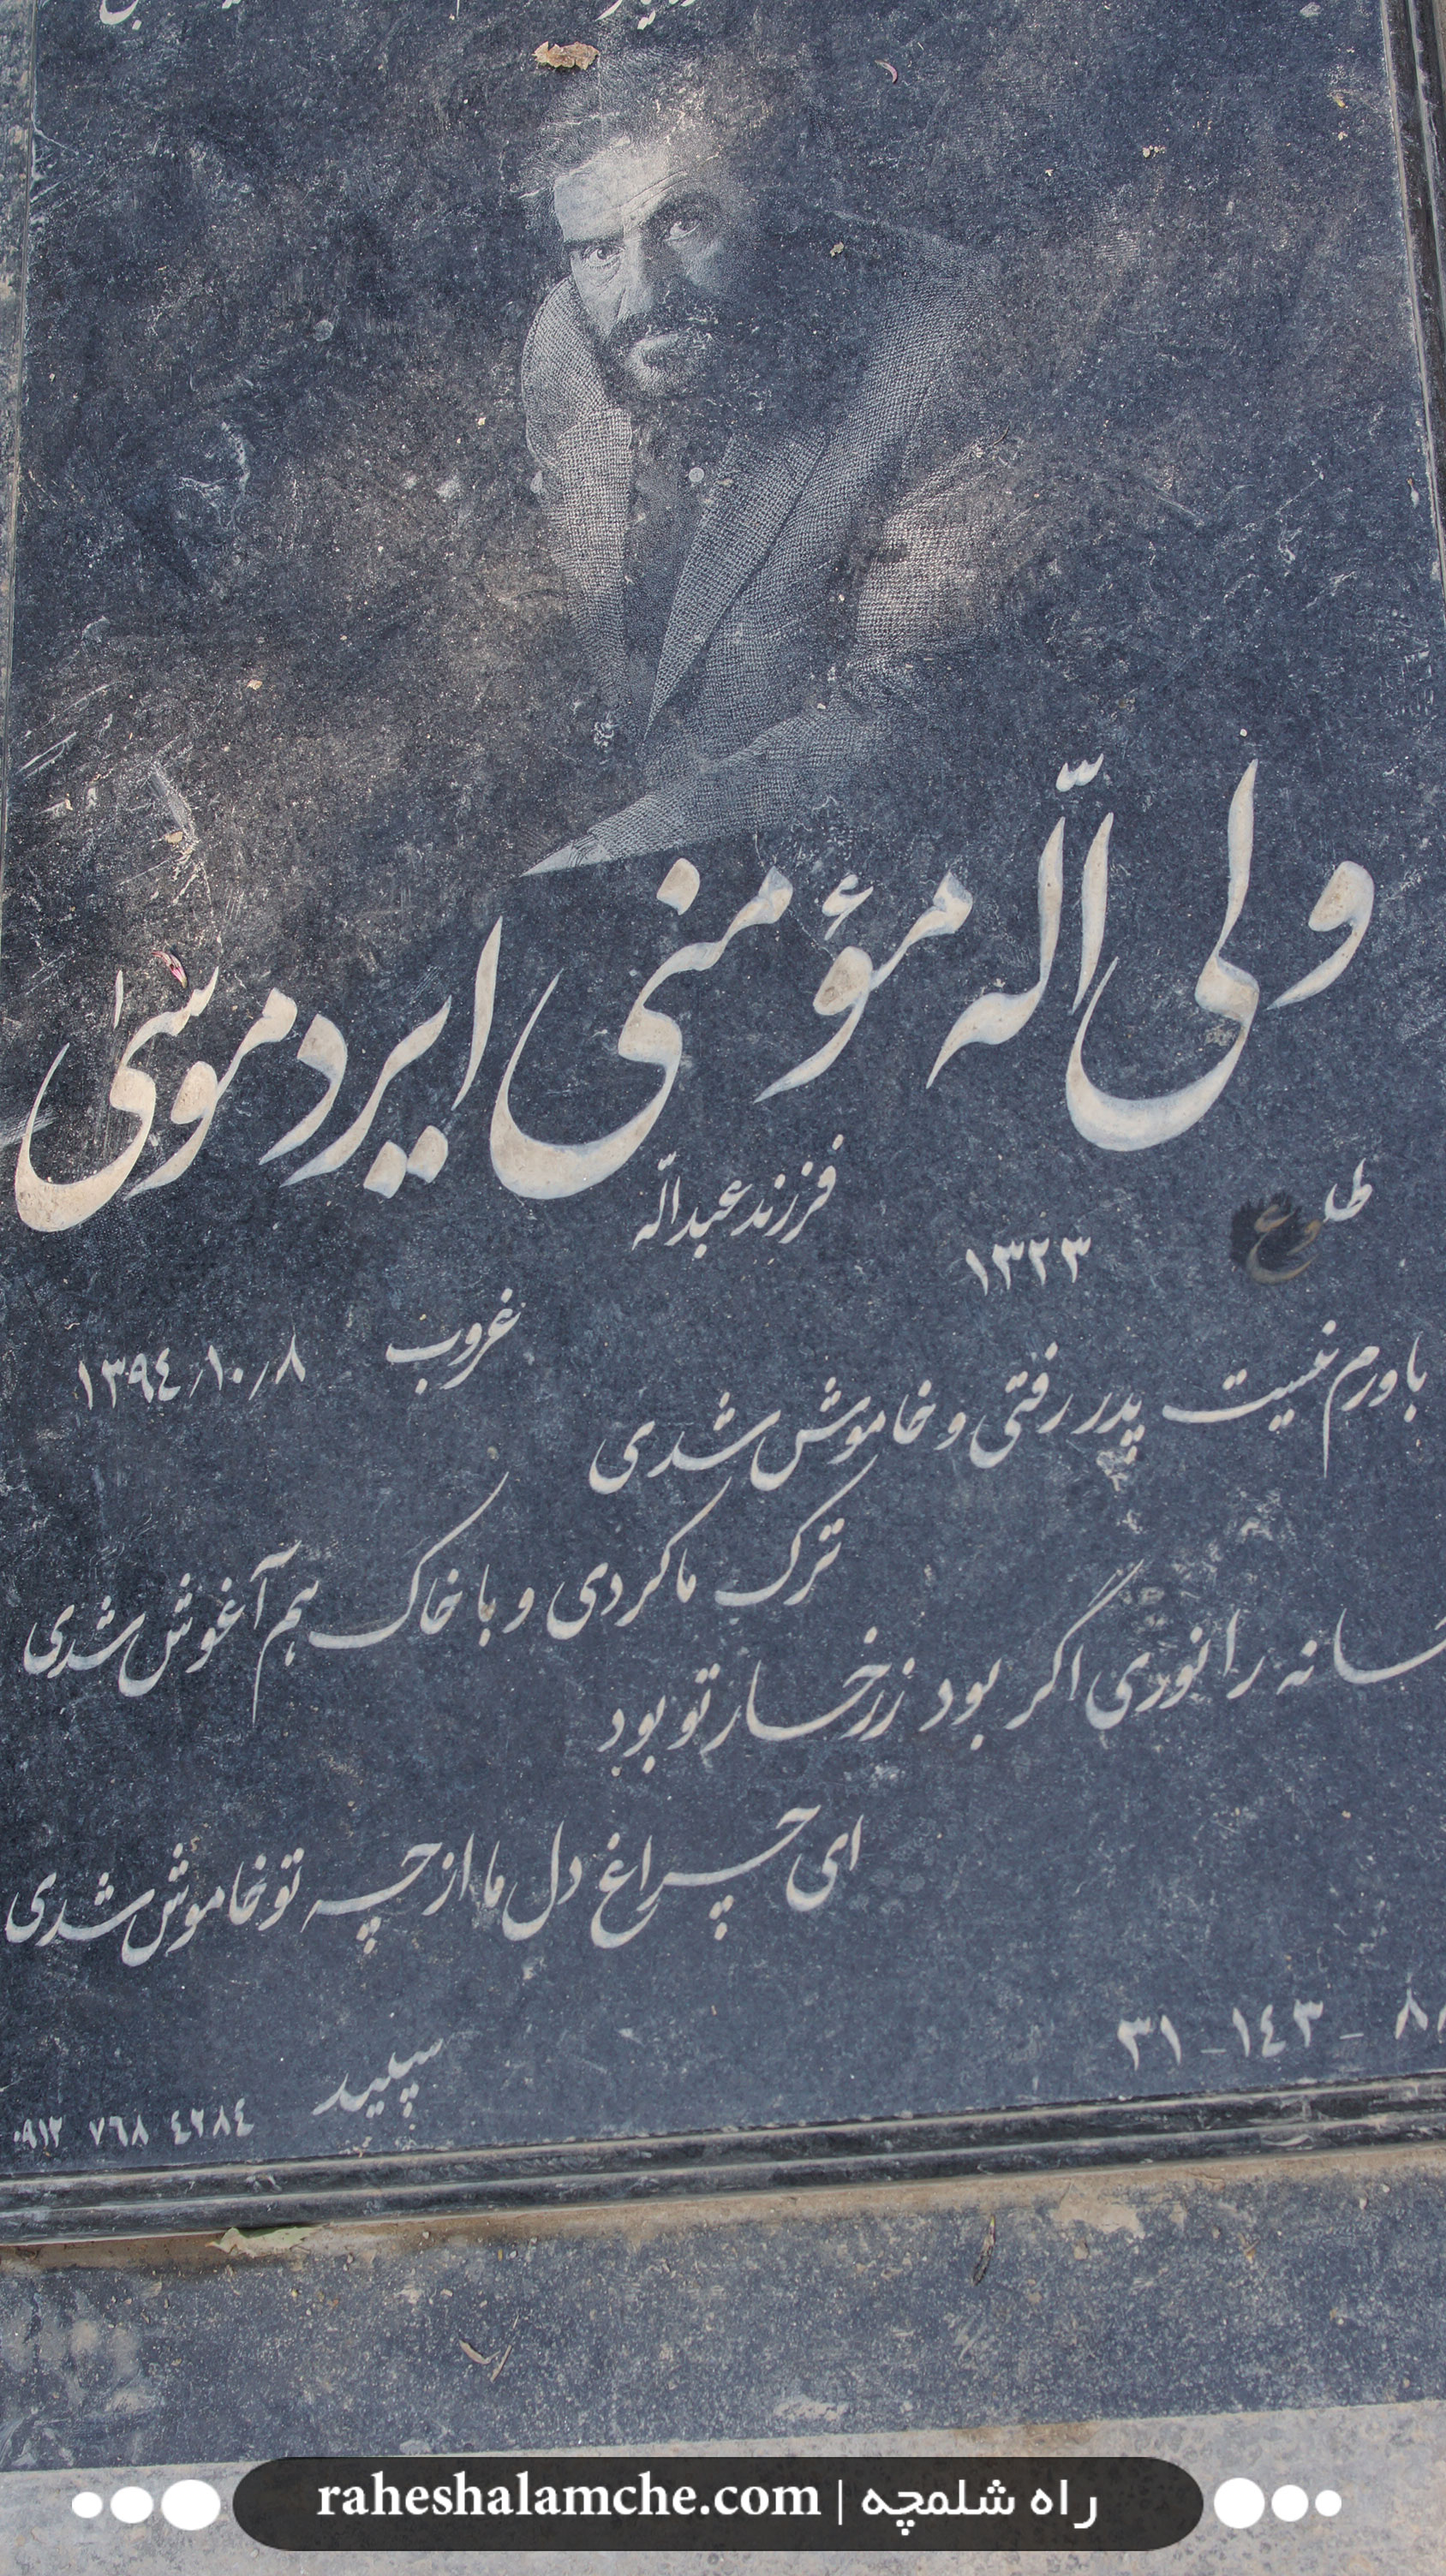 ولی الّه مؤمنی ایردموسی
فرزند عبدالّه
طلوع ۱۳۲۳
غروب ۱۳۹٤/۱۰/۸
باورم نیست پدر رفتی و خاموش شدی
ترک ما کردی و با خاک هم آغوش شدی
را نوری اگر بود ز رخسار تو بود
ای چراغ دل ما از چه تو خاموش شدی
۳۱ - ۱٤۳ -
سپید ۰۹۱۲ ۷٦۸ ٤۲۸٤
راه شلمچه | raheshalamche.com